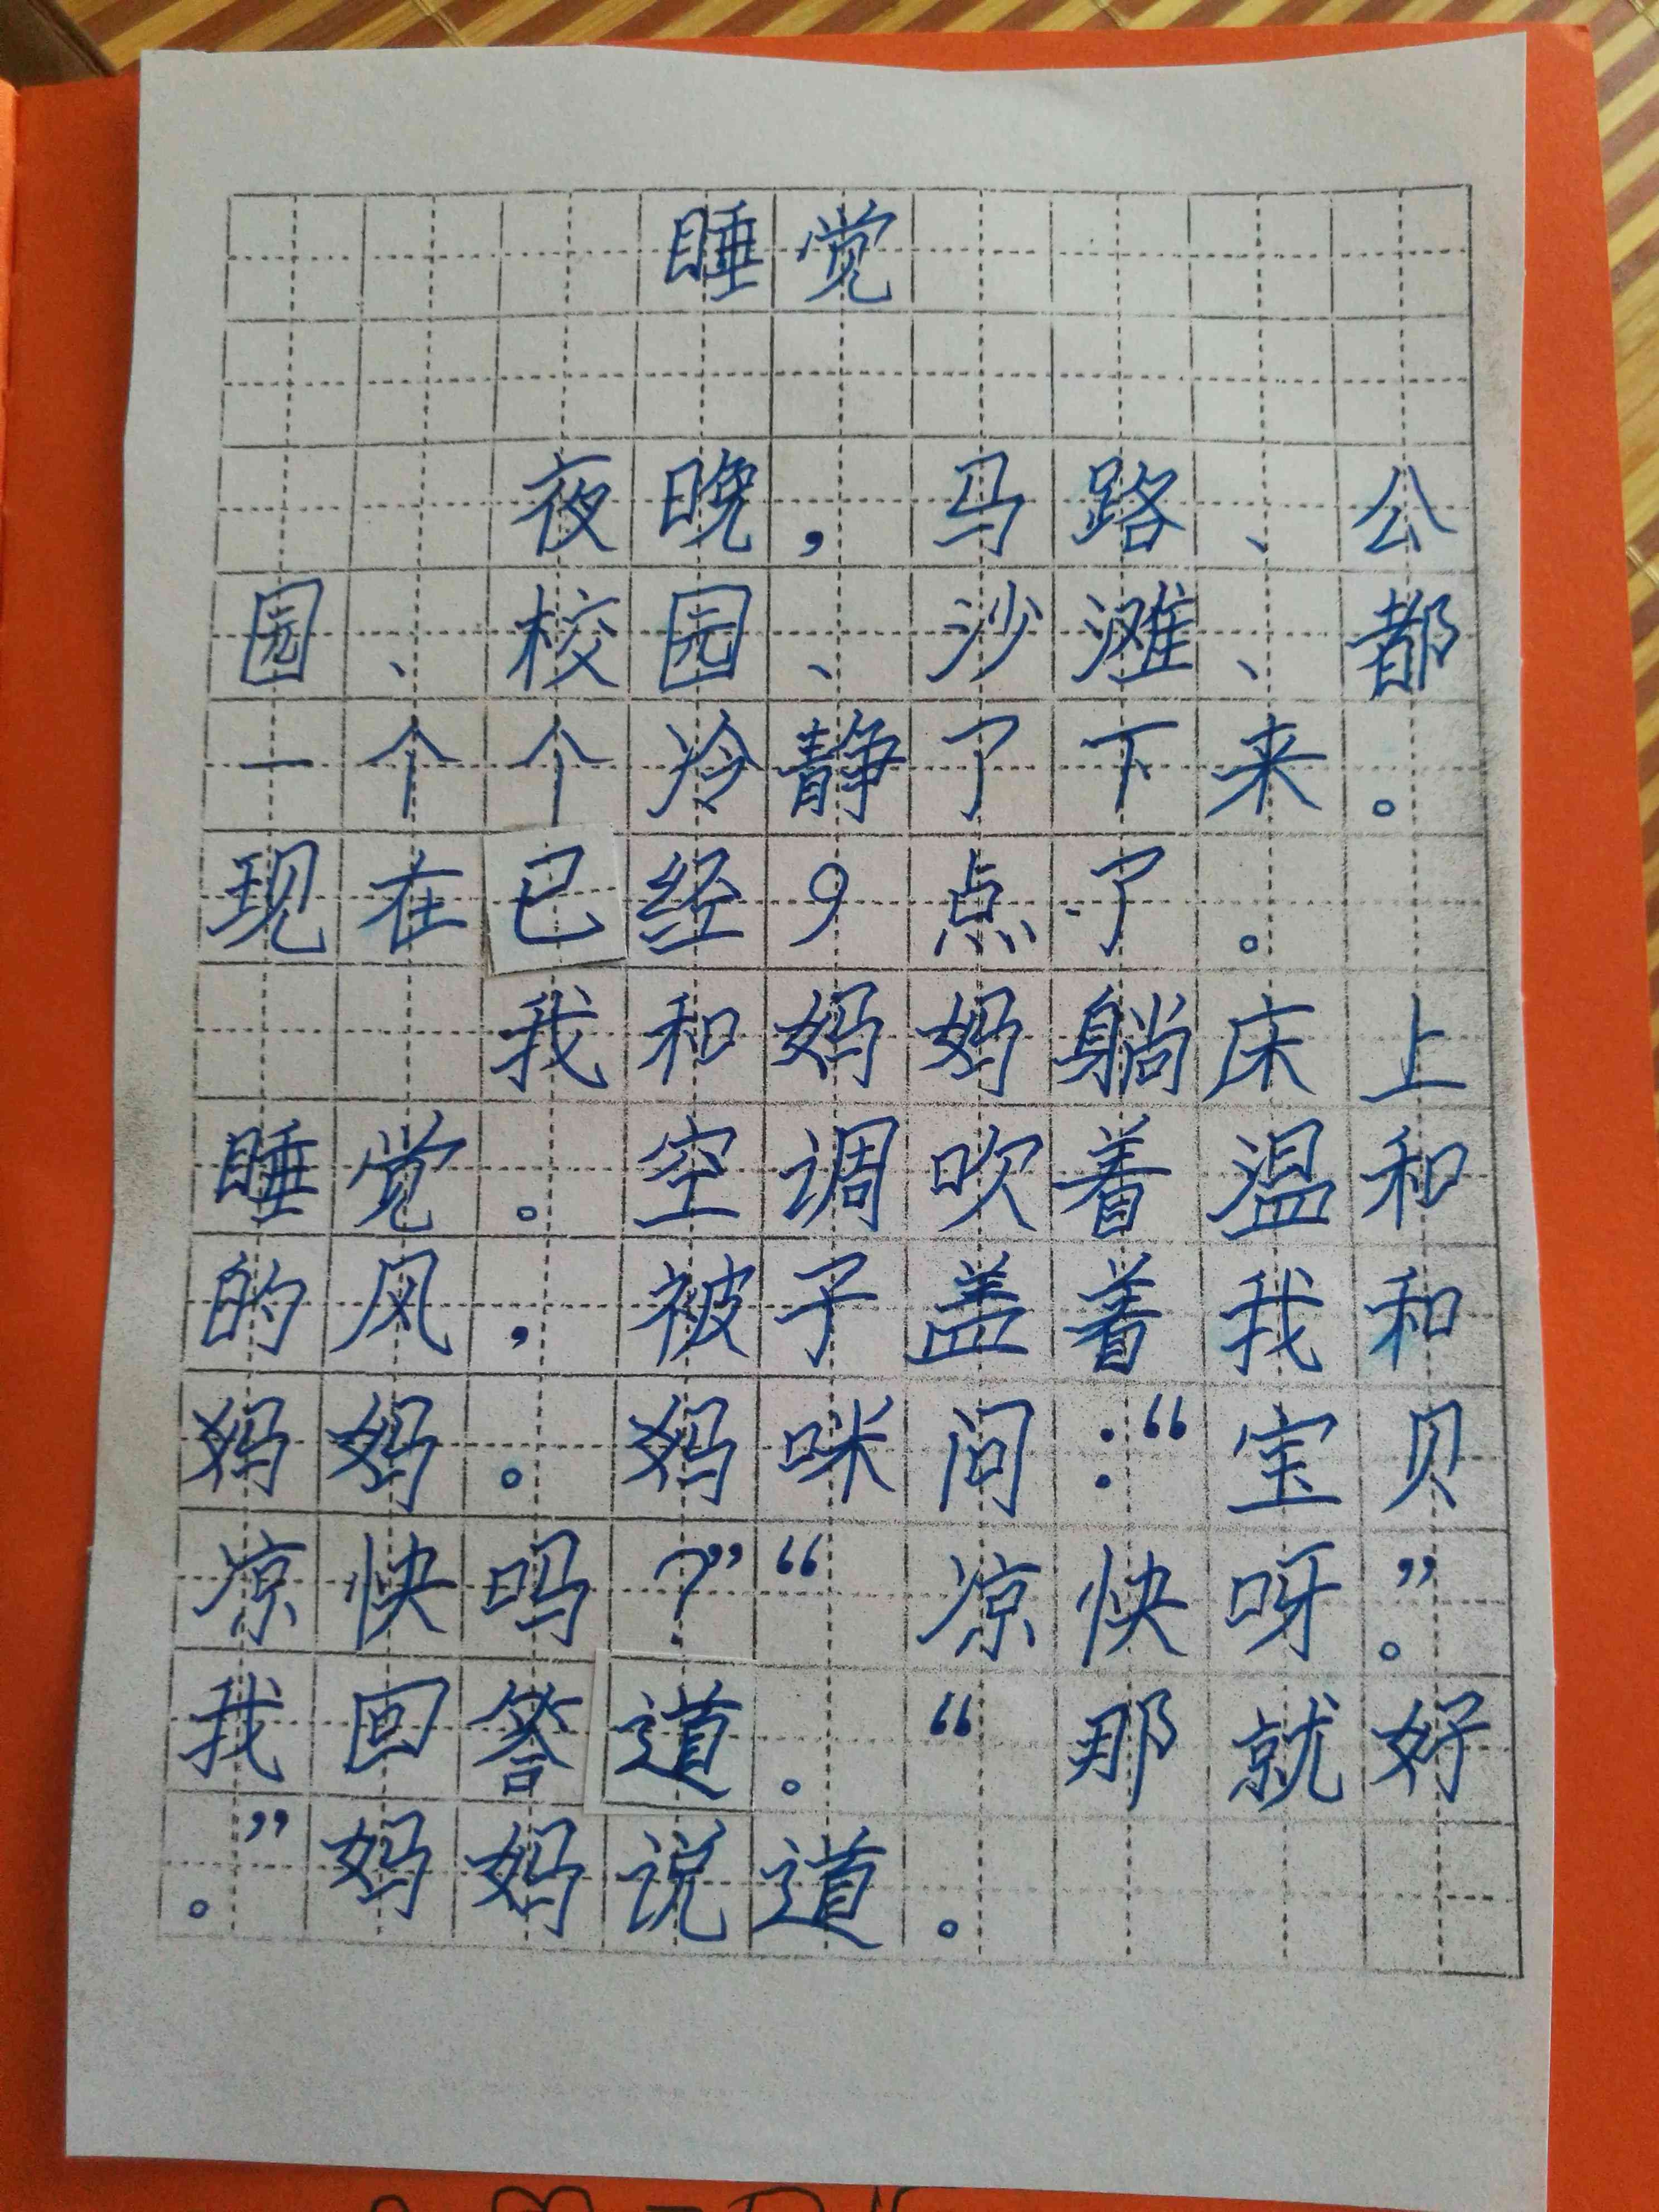 睡觉
夜晚，马路、公
园、校园、沙滩、都
一个个冷静了下来。
现在已经9点了。
我和妈妈躺床上
睡觉。空调吹着温和
的风，被子盖着我和
妈妈。妈咪问：“宝贝
凉快吗？”“凉快呀。”
我回答道。“那就好
。”妈妈说道。